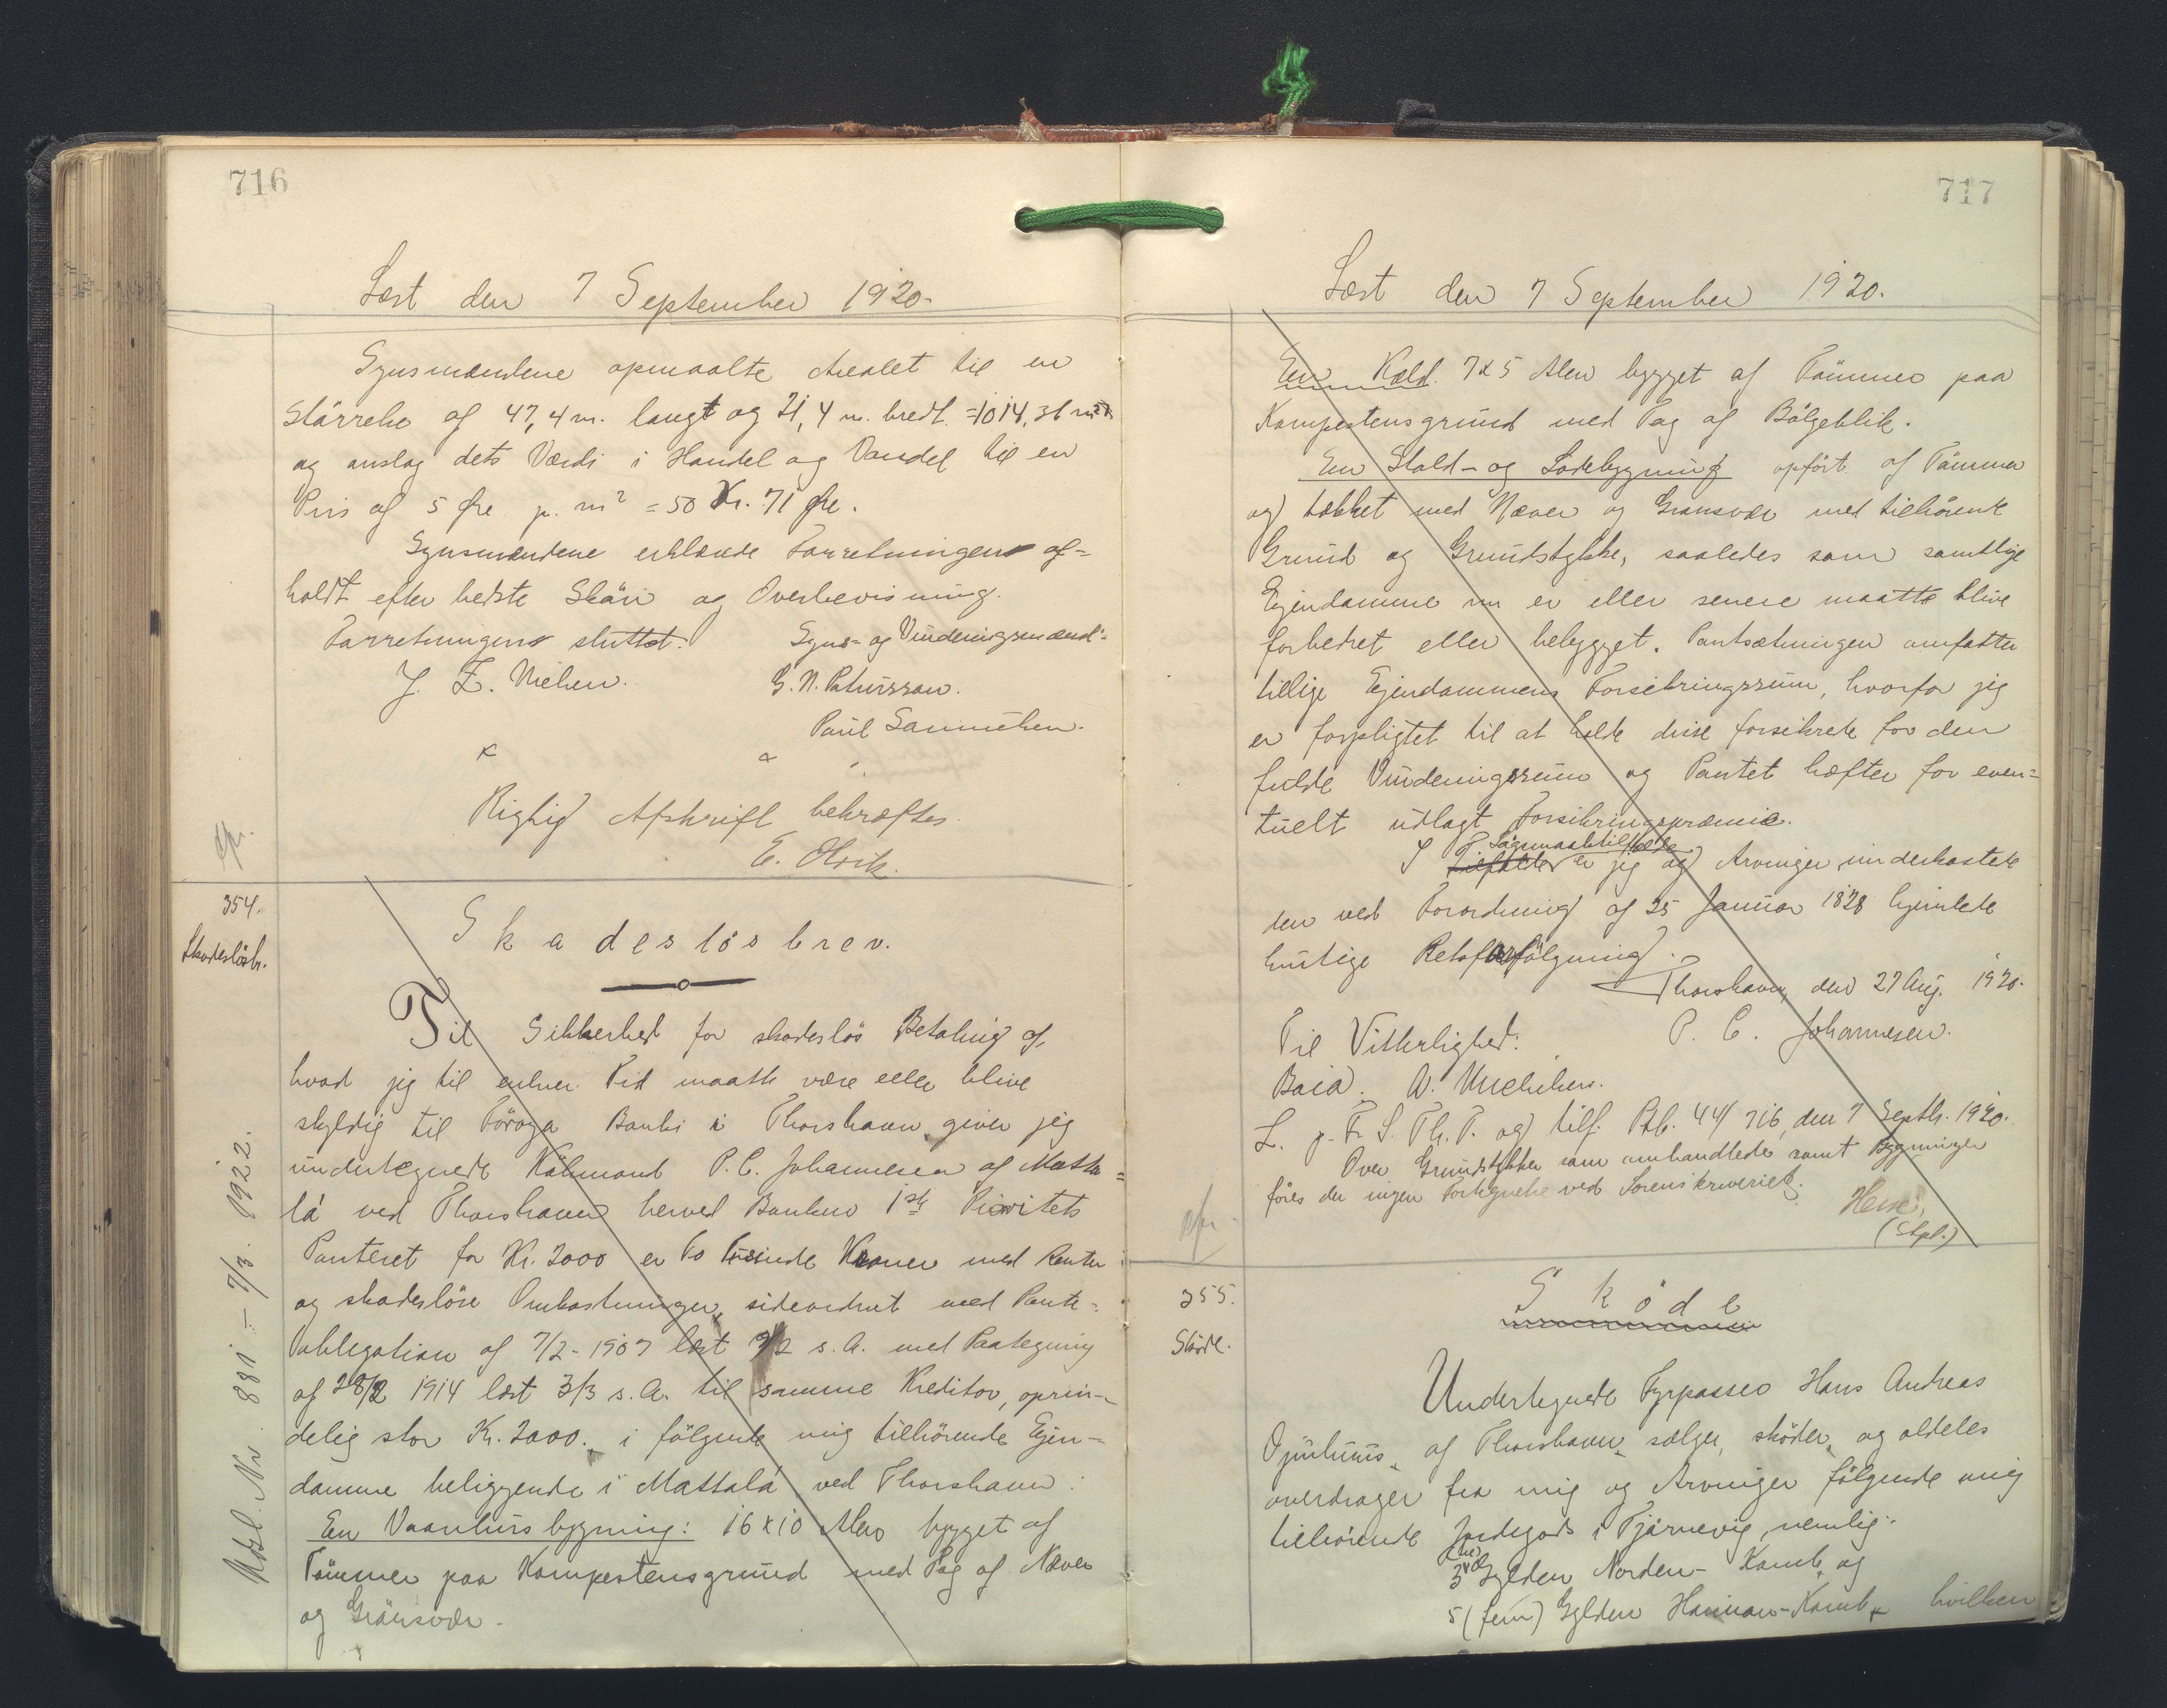 716
Læst den 7 September 1920.
Synsmændene opmaalte Arealet til en
Störrelse af 47,4 m. langt og 21,4 m. bredt. = 1014,36 m²
og anslog dets Værdi i Handel og Vandel til en
Pris af 5 Øre p. m² = 50 Kr. 71 Øre.
Synsmændene erklærede Forretningen af=
holdt efter bedste Skön og Overbevisning.
Forretningen sluttet.
Syns- og Vurderingsmænd:
J. Z. Nielsen.
G. N. Patursson.
Paul Samuelsen.
Rigtig Afskrift bekræftes
E. Olrik.
354.
Skadeslösbr.
Skadeslösbrev.
Til Sikkerhed for skadeslös Betaling af,
hvad jeg til enhver Tid maatte være eller blive
skyldig til Föroya Banki i Thorshavn giver jeg
undertegnede Köbmand P. C. Johannesen af Matta=
lá ved Thorshavn herved Banken 1ste Prioritets
Panteret for Kr. 2000 er To Tusinde Kroner med Renter
og skadeslöse Omkostninger, sideordnet med Pante=
obligation af 7/2 - 1907 læst 9/2 s. A. med Paategning
af 28/2 1914 læst 3/3 s. A. til samme Kreditor, oprin-
delig stor Kr. 2000. i fölgende mig tilhörende Ejen-
domme beliggende i Mattalá ved Thorshavn:
En Vaanhusbygning: 16 x 10 Alen bygget af
Tömmer paa Kampestensgrund med Tag af Næver
og Grönsvær.
Udsl. Nr. 881 - 7/3. 1922.
717
Læst den 7 September 1920.
En Kæld. 7 x 5 Alen bygget af Tömmer paa
Kampestensgrund med Tag af Bölgeblik.
En Stald- og Ladebygning opfört af Tömmer
og tækket med Næver og Grönsvær med tilhörende
Grund og Grundstykke, saaledes som samtlige
Ejendomme nu er eller senere maatte blive
forbedret eller bebygget. Pantsætningen omfatter
tillige Ejendommens Forsikringssum, hvorfor jeg
er forpligtet til at holde disse forsikrede for den
fulde Vurderingssum og Pantet hæfter for even=
tuelt udlagt Forsikringspræmie.
Sögsmaalstilfælde
I Tilfælde er jeg og Arvinger underkastede
den ved Forordning af 25 Januar 1828 hjemlede
hurtige Retsforfölgning.
Thorshavn, den 27 Aug. 1920.
Til Vitterlighed:
P. C. Johannesen.
L. p. F. S. Th. T. og tilf. Ptb. 44/716, den 7 Septb. 1920.
Over Grundstykker som omhandlede samt Bygninger
föres der ingen Fortegnelse ved Sorenskriveriet.
(Stpl.)
355.
Sköde.
Sköde
Undertegnede Fyrpasser Hans Andreas
Djurhuus, af Thorshavn, sælger, sköder, og aldeles
overdrager fra mig og Arvinger fölgende mig
tilhörende Jordegods i Tjörnevig, nemlig:
3 (tre) Gylden Norden- Kamb, og
5 (fem) Gylden Hannan-Kamb, hvilken